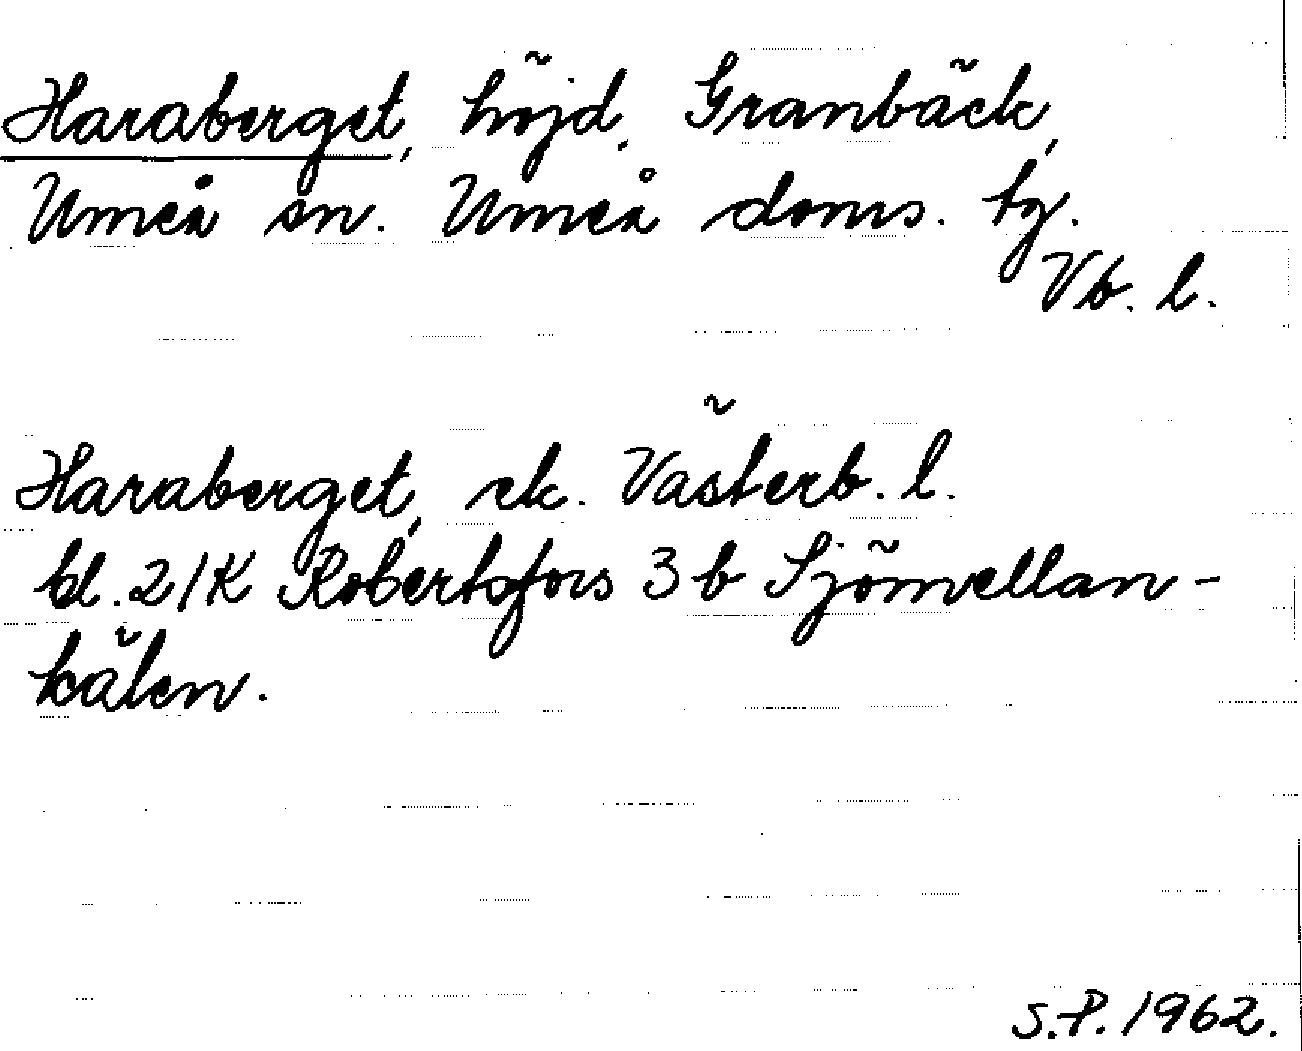 Haraberget, höjd, Granbäck,
Umeå sn. Umeå doms. tg.
Vb. l.
Haraberget, ek. Västerb. l.
bl. 21K Robertsfors 3 b Sjömellan-
kälen.
S.P. 1962.